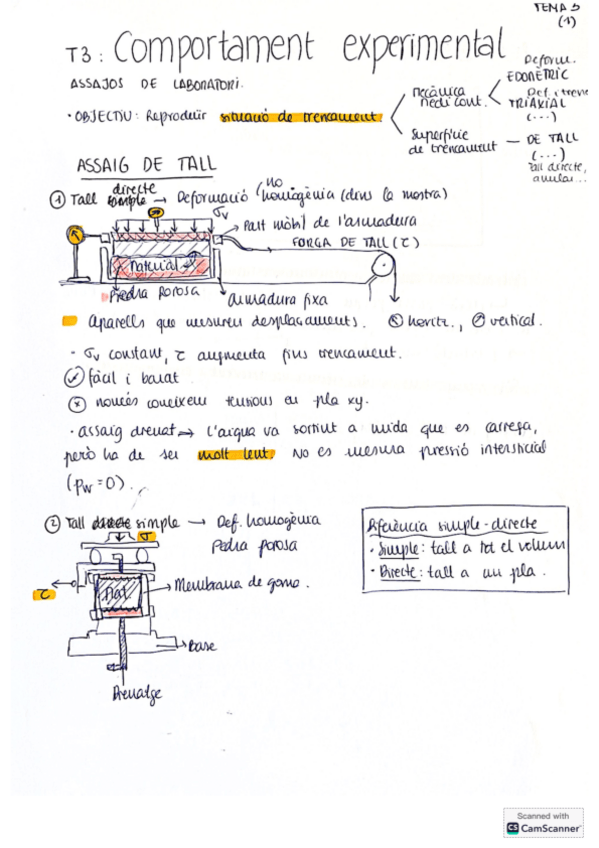 TEMA 3
(1)
T3: Comportament experimental
ASSAJOS DE LABORATORI.
Deform.
EDOMÈTRIC
· OBJECTIU: Reproduir situació de trencament.
mecànica
medi cont.
TRIAXIAL
(...)
Superfície
de trencament
DE TALL
(...)
Tall directe,
anular...
ASSAIG DE TALL
① Tall simple directe → Deformació no homogènia (dins la mostra)
σv
Part mòbil de l'armadura
FORÇA DE TALL (τ)
Material
Piedra porosa
Armadura fixa
Aparells que mesuren desplaçaments. horitz., vertical.
· σv constant, τ augmenta fins trencament.
fàcil i barat.
només coneixem tensions en pla xy.
· assaig drenat → l'aigua va sortint a mida que es carrega,
però ha de ser molt lent. No es mesura pressió intersticial
(pw=0).
② Tall directe simple → Def. homogènia
Pedra porosa
σ
τ
Mat.
Membrana de goma.
Base
Drenatge
Diferència simple-directe
· Simple: tall a tot el volum
· Directe: tall a un pla.
Scanned with
CS CamScanner